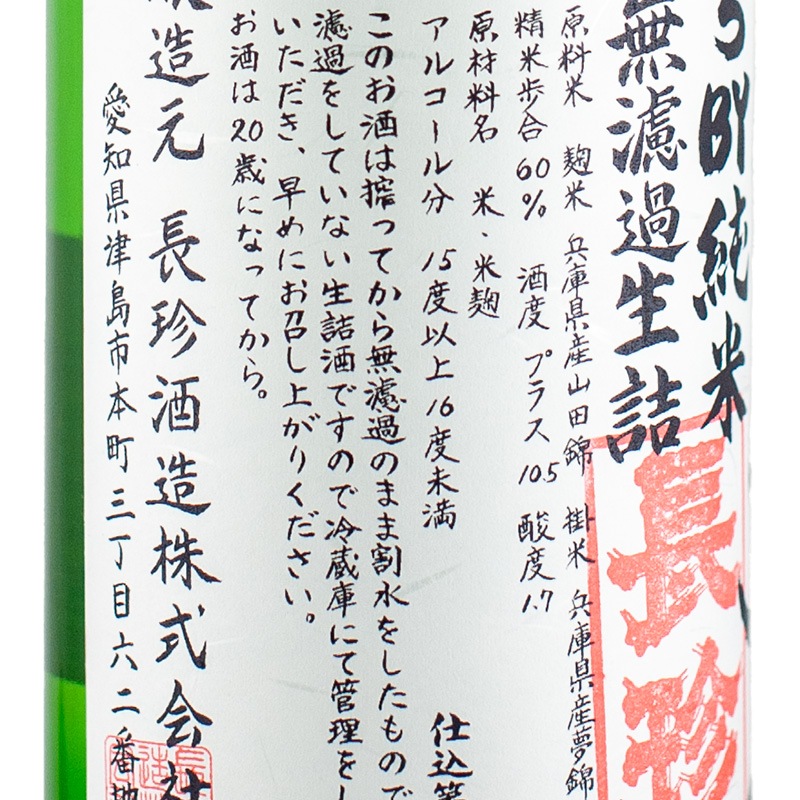 5BY純米
無濾過生詰
長珍
原料米 麹米 兵庫県産山田錦 掛米 兵庫県産夢錦
精米歩合 60% 酒度 プラス 10.5 酸度 1.7
原材料名 米・米麹
アルコール分 15度以上 16度未満
仕込
このお酒は搾ってから無濾過のまま割水をしたもので
濾過をしていない生詰酒ですので冷蔵庫にて管理をし
いただき、早めにお召し上がりください。
お酒は20歳になってから。
造元 長珍酒造株式会社
愛知県津島市本町三丁目六二番地